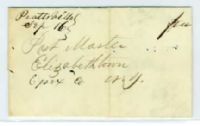 Prattsville
Sep 16
free
Post Master
Elizabethtown
Essex Co N.Y.